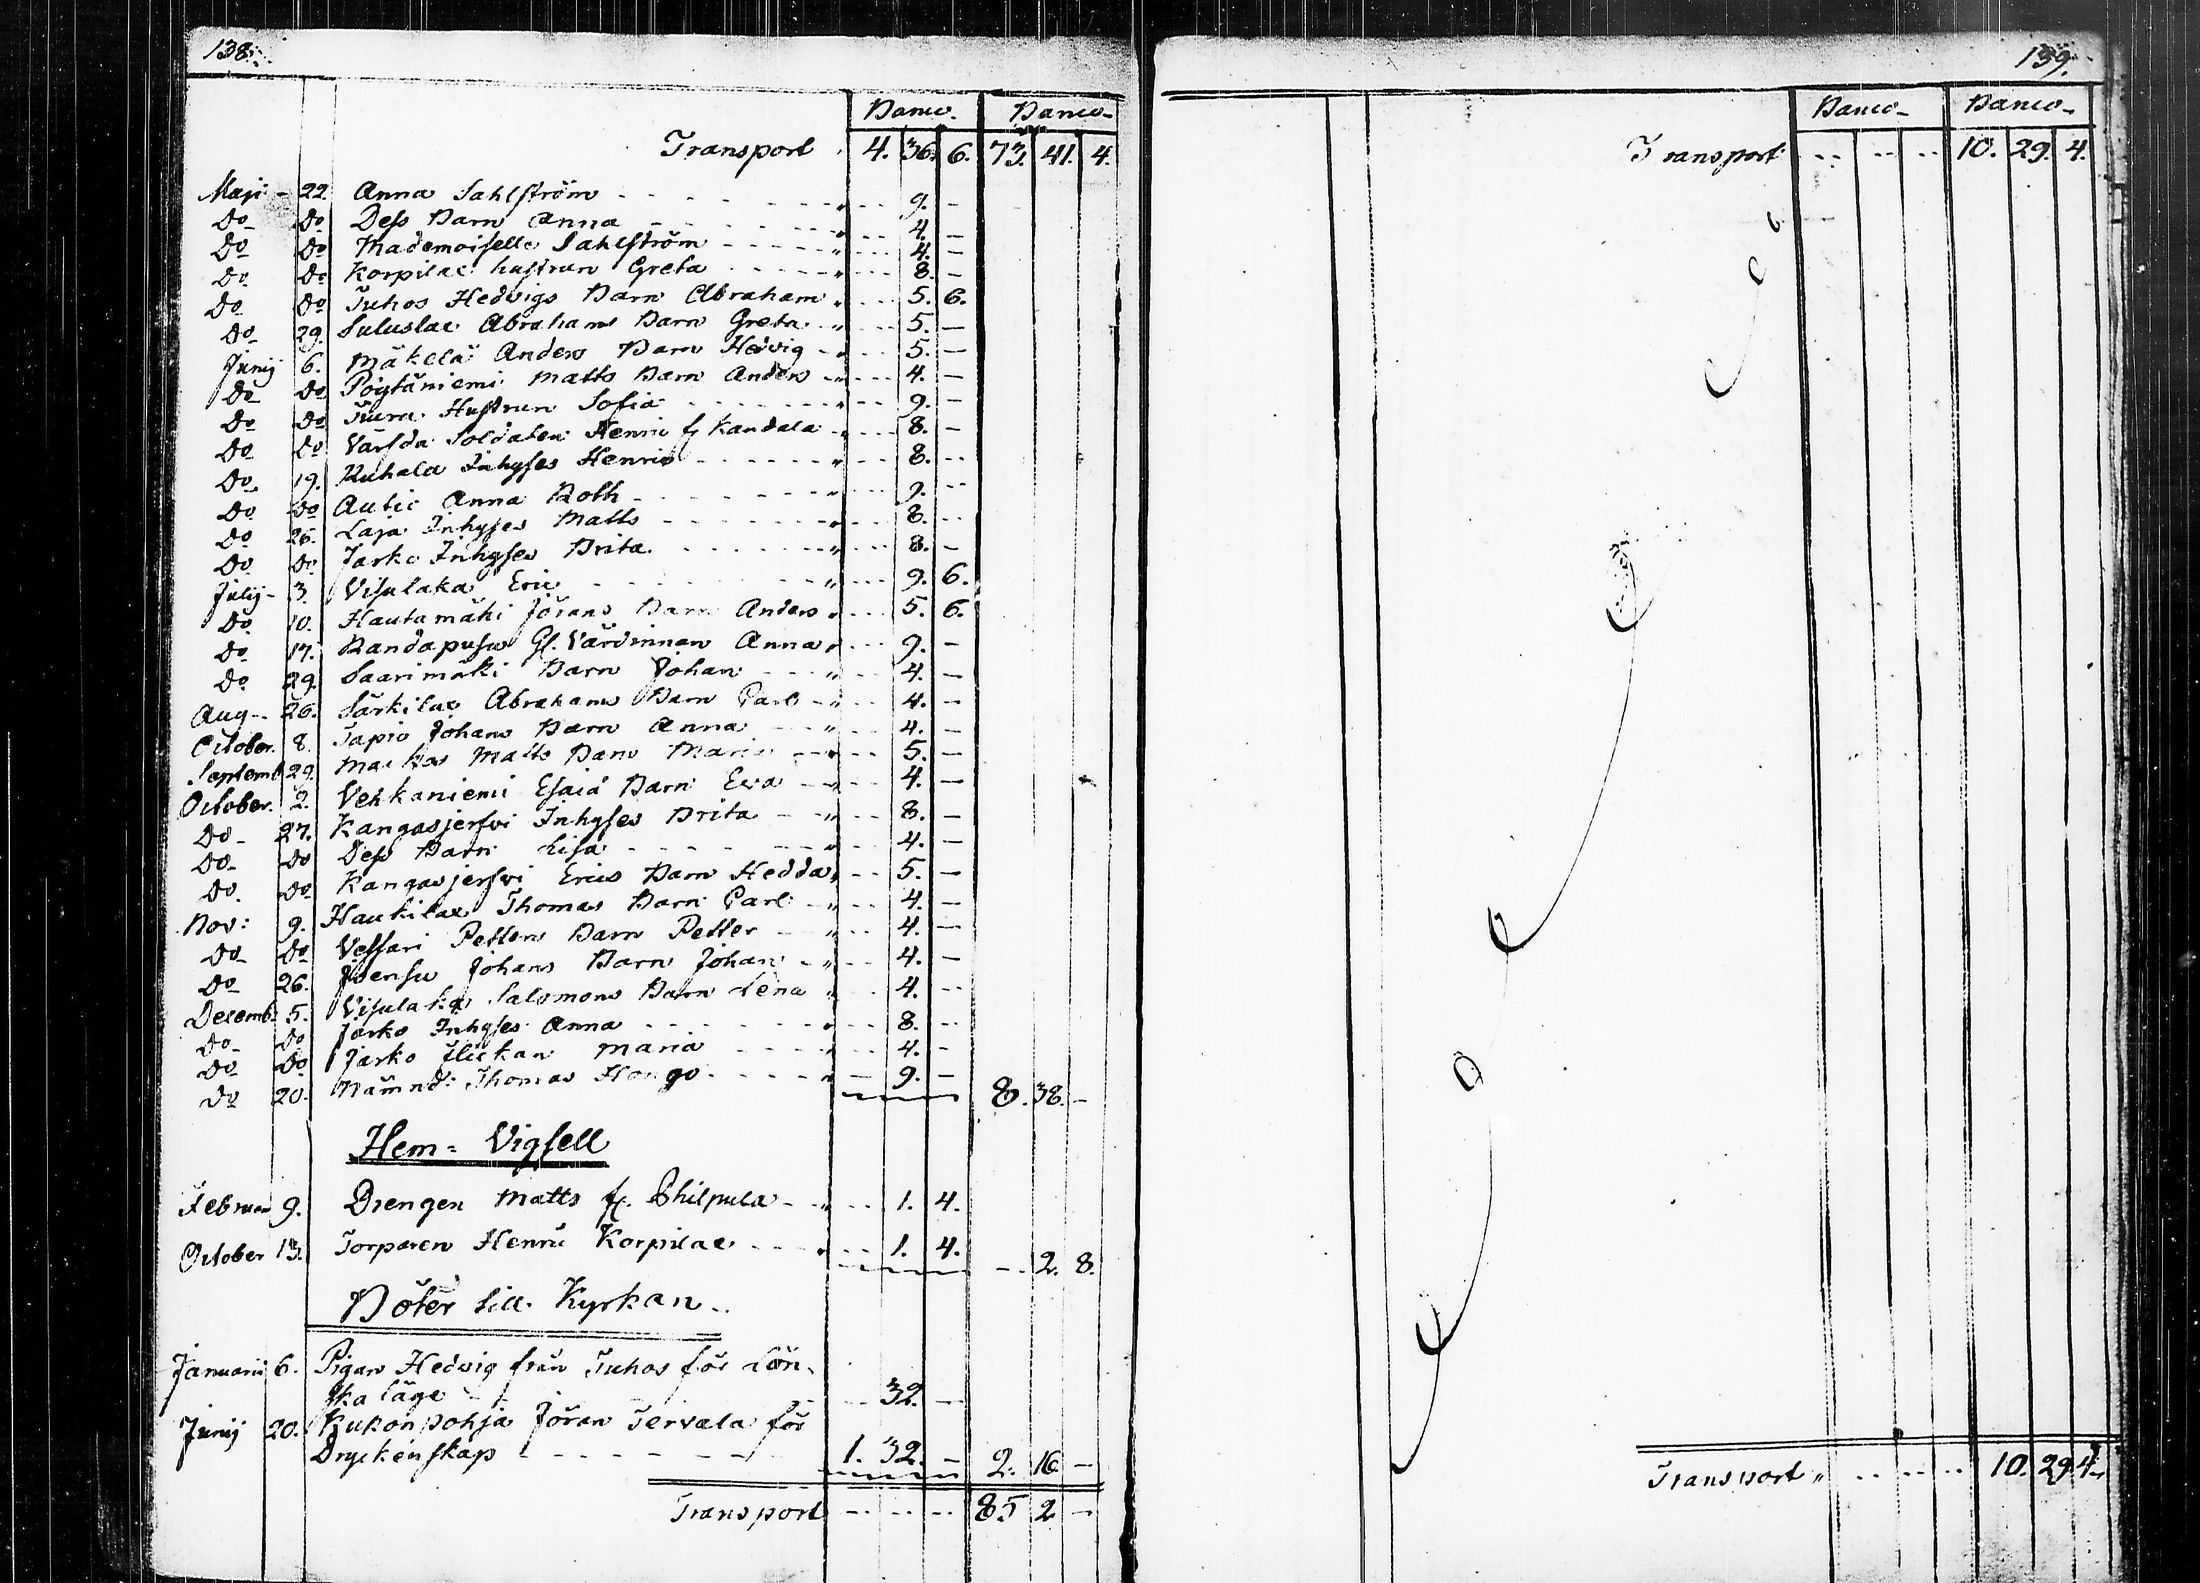 138.
Banco. Banco.
Transport 4. 36. 6. 73. 41. 4.
Maji - 22. Anna Sahlström - - - 9. -
Do Do Dess Barn Anna - - - 4. -
Do Do Mademoiselle Sahlström - - - 4. -
Do Do Korpilax hustrun Greta - - - 8. -
Do Do Tuhos Hedvigs Barn Abraham - - - 5. 6.
Do 29. Abrahams Barn Greta - - - 5. -
Junij 6. Mäkelä Anders Barn Hedvig - - - 5. -
Do Do Pöytäniemi Matts Barn Anders - - - 4. -
Do Do Hustrun Sofia - - - 9. -
Do Do Soldaten Henric fr. Kandala - - - 8. -
Do 19. Ruhala Inhyses Henric - - - 8. -
Do Do Autio Anna Roth - - - 9. -
Do 26. Laja Inhyses Matts - - - 8. -
Do Do Jarko Inhyses Brita - - - 8. -
Julij - 3. Visulaka Eric - - - 9. 6.
Do 10. Hautamäki Jörans Barn Anders - - - 5. 6.
Do 17. Randapusu Gl. Värdinnan Anna - - - 9. -
Do 29. Saarimäki Barn Johan - - - 4. -
Aug - 26. Särkilax Abrahams Barn Carl - - - 4. -
October. 8. Tapio Johans Barn Anna - - - 4. -
Septemb 29. Matts Barn Maria - - - 5. -
October. 2. Vehkaniemi Esaia Barn Eva - - - 4. -
Do - 27. Kangasjerfvi Inhyses Brita - - - 8. -
Do - Do Dess Barn Lisa - - - 4. -
Do Do Kangasjerfvi Erics Barn Hedda - - - 5. -
Nov: 9. Haukilax Thomas Barn Carl - - - 4. -
Do Do Vessari Petters Barn Petter - - - 4. -
Do 26. Joensu Johans Barn Johan - - - 4. -
Decemb: 5. Visulaka Salomons Barn Lena - - - 4. -
Do Do Jarko Inhyses Anna - - - 8. -
Do Do Jarko flickan Maria - - - 4. -
Do 20. Nämnd: Thomas Hongo - - - 9. - 8. 38. -
Hem = Vigsell
Februar 9. Drengen Matts fr. Philpula - - - 1. 4.
October 13. Torparen Henric Korpilax - - - 1. 4. - - 2. 8.
Böter till Kyrkan
Januarii 6. Pigan Hedvig från Tuhos för Lön-
ska läge - - - 32. -
Junij 20. Kukonpohja Jöran Tervala för
Dryckenskap - - - 1. 32. - 2. 16. -
Transport - - - - 85 2 -
139.
Banco - Banco -
Transport - - - - - 10. 29. 4.
Transport - - - - - 10. 29. 4.